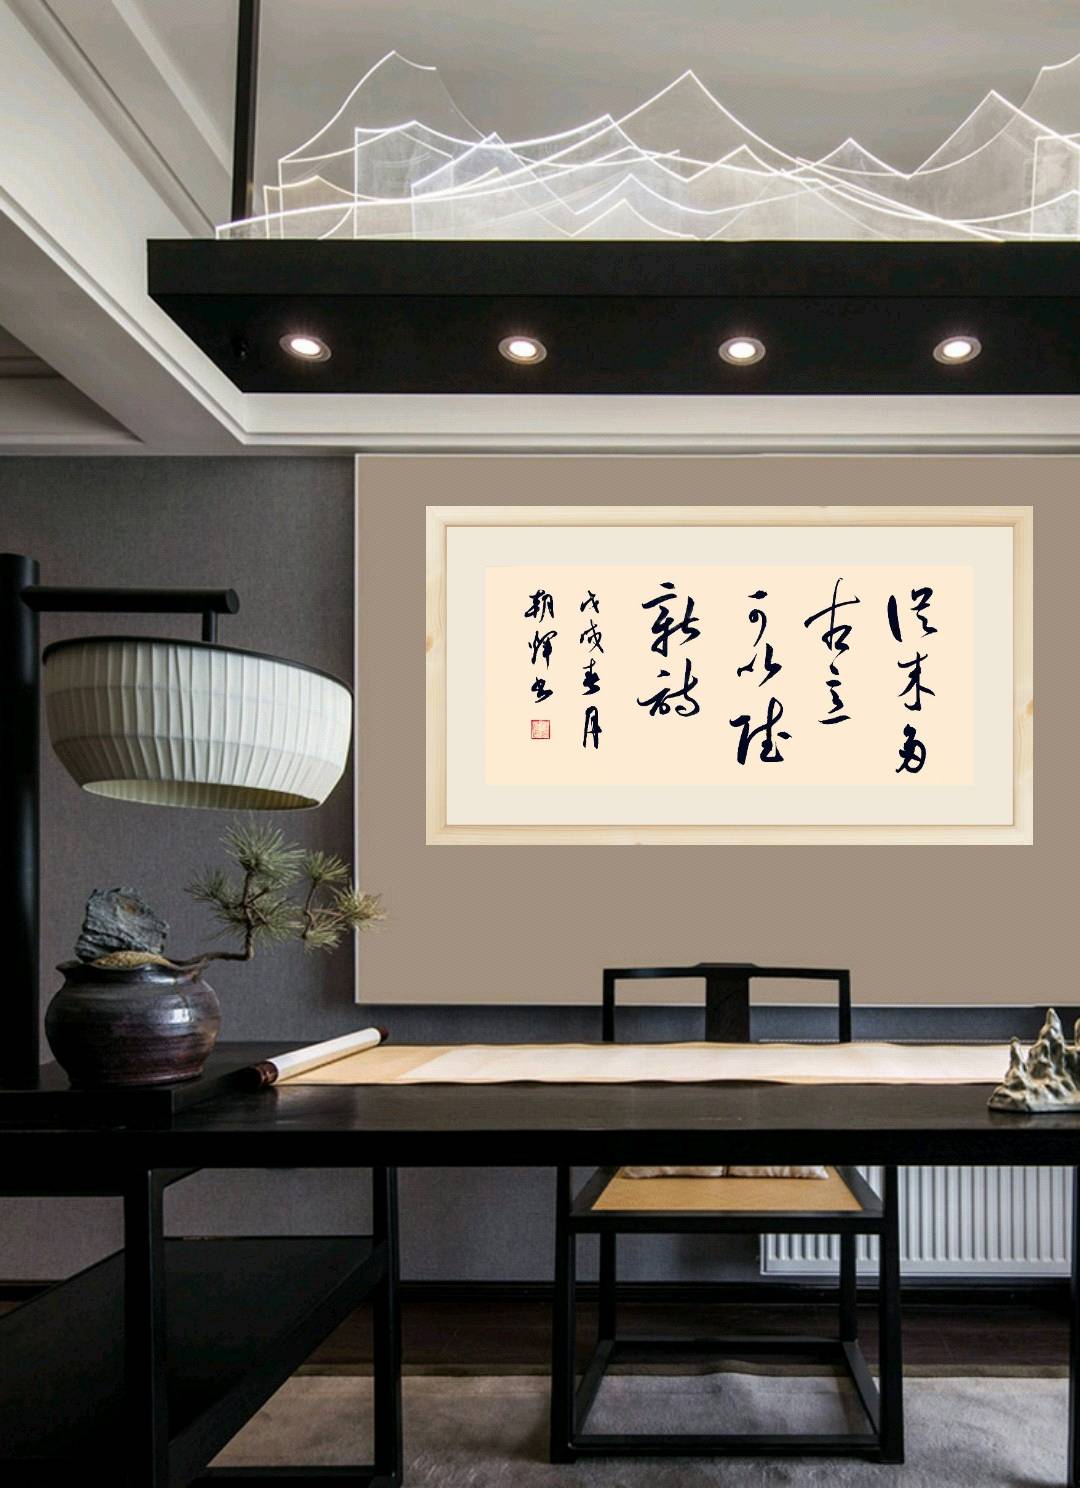 從来多
古意
可以賦
新詩
戊戌春月
朝輝書